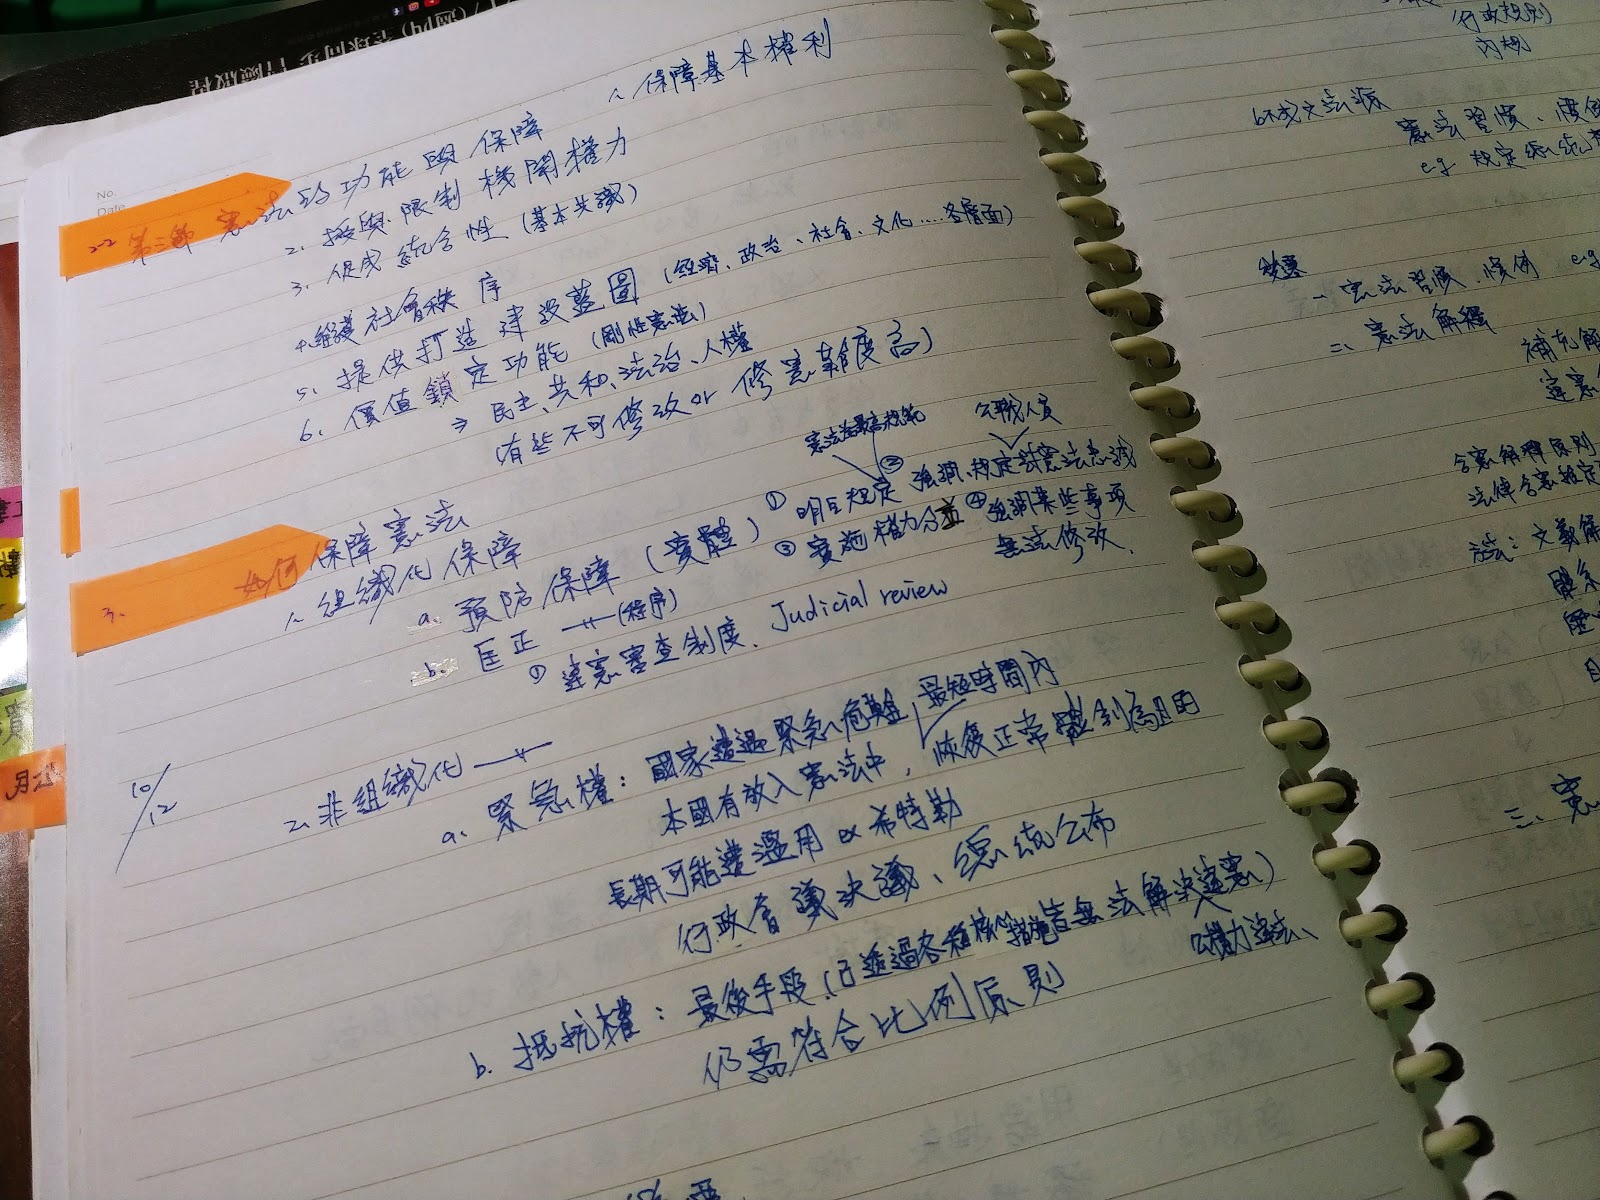 1、保障基本權利
2-2 第二節 憲法的功能與保障
2、授與、限制機關權力
3、促成統合性(基本共識)
4、維護社會秩序
5、提供打造建設藍圖(經濟、政治、社會、文化....各層面)
6、價值鎖定功能(剛性憲法)
⇒民主、共和、法治、人權
(有些不可修改or修憲難度高)
3、如何保障憲法
1、組織化保障
a、預防保障(實體)
①明白規定
憲法為最高規範
②強調、規定對憲法忠誠
公職人員
③實施權力分立
④強調某些事項
無法修改、
b、匡正〃(程序)
①違憲審查制度、Judicial review
10/12
2、非組織化〃
a、緊急權:國家遭遇緊急危難
最短時間內
本國有放入憲法中,恢復正常體制為目的
長期可能遭濫用 ex希特勒
行政會議決議、總統公布
b、抵抗權:最後手段(已透過各種措施皆無法解決違憲)
公權力違法、
仍需符合比例原則
(行政規則)
內規
b不成文法源
憲法習慣、慣例
eg 規定總統
一、憲法習慣、慣例 eg
二、憲法解釋
補充解
違憲
合憲解釋原則
法律合憲推定
方法:文義解
三、憲